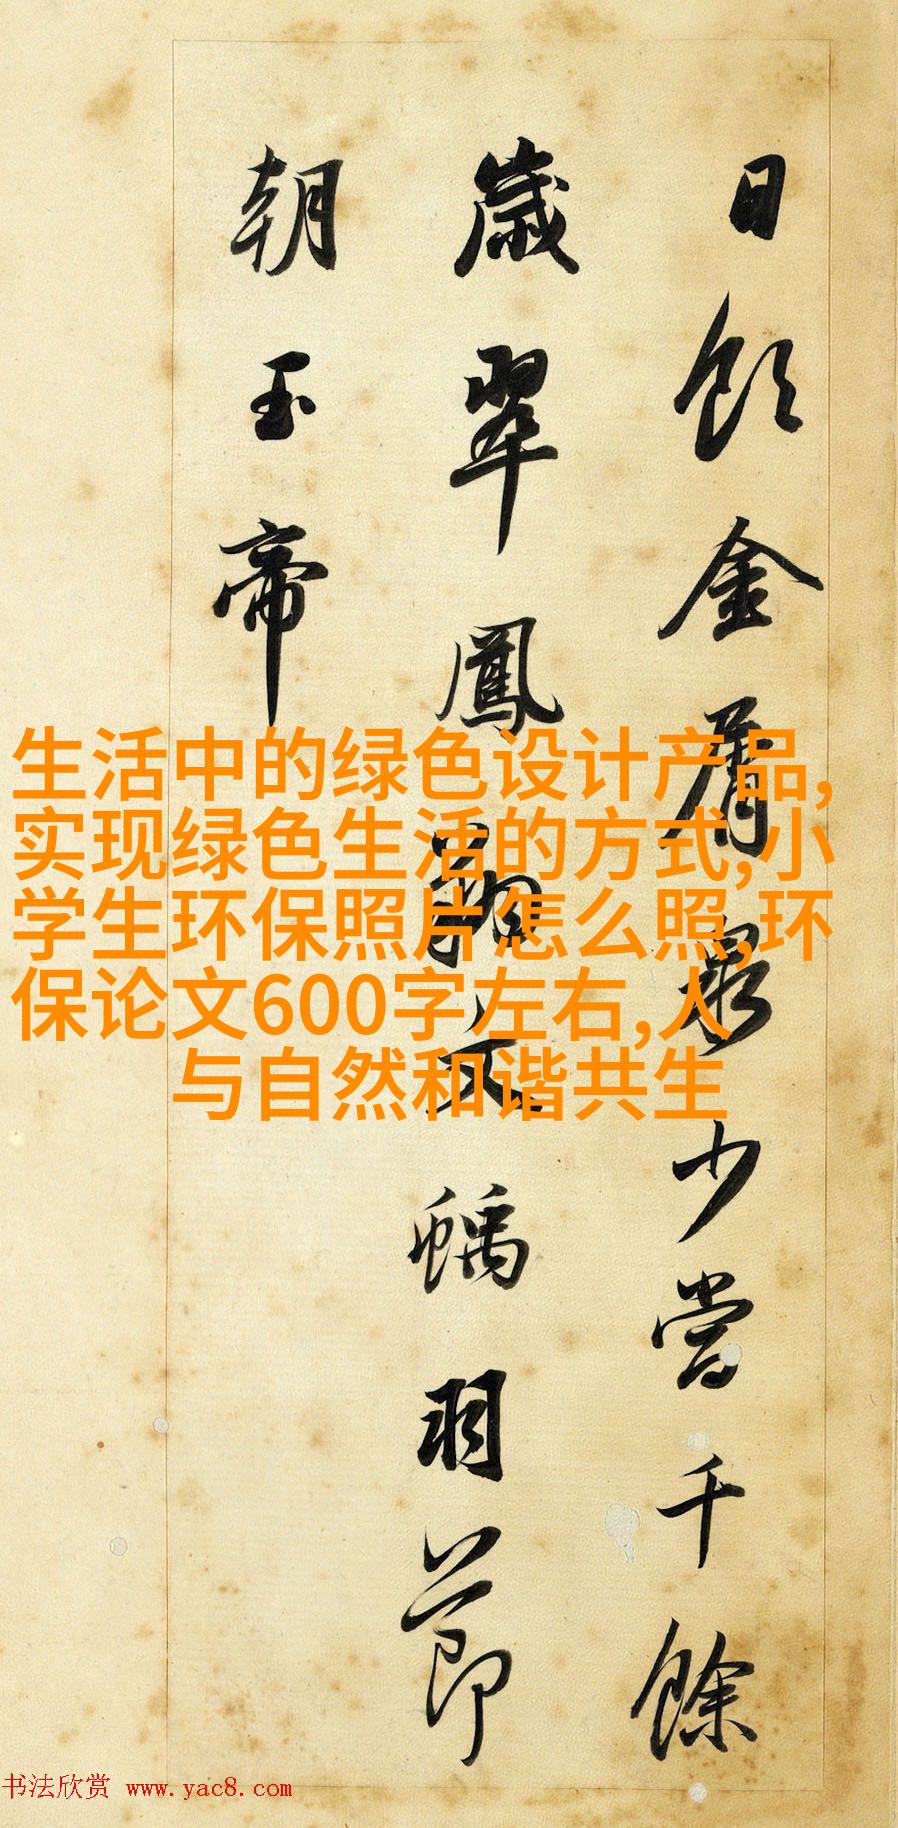 日飲金屑泉少當千餘
歲翠鳳翔文螭羽節
朝玉帝
生活中的绿色设计产品,
实现绿色生活的方式,小
学生环保照片怎么照,环
保论文600字左右,人
与自然和谐共生
书法欣赏 www.yac8.com